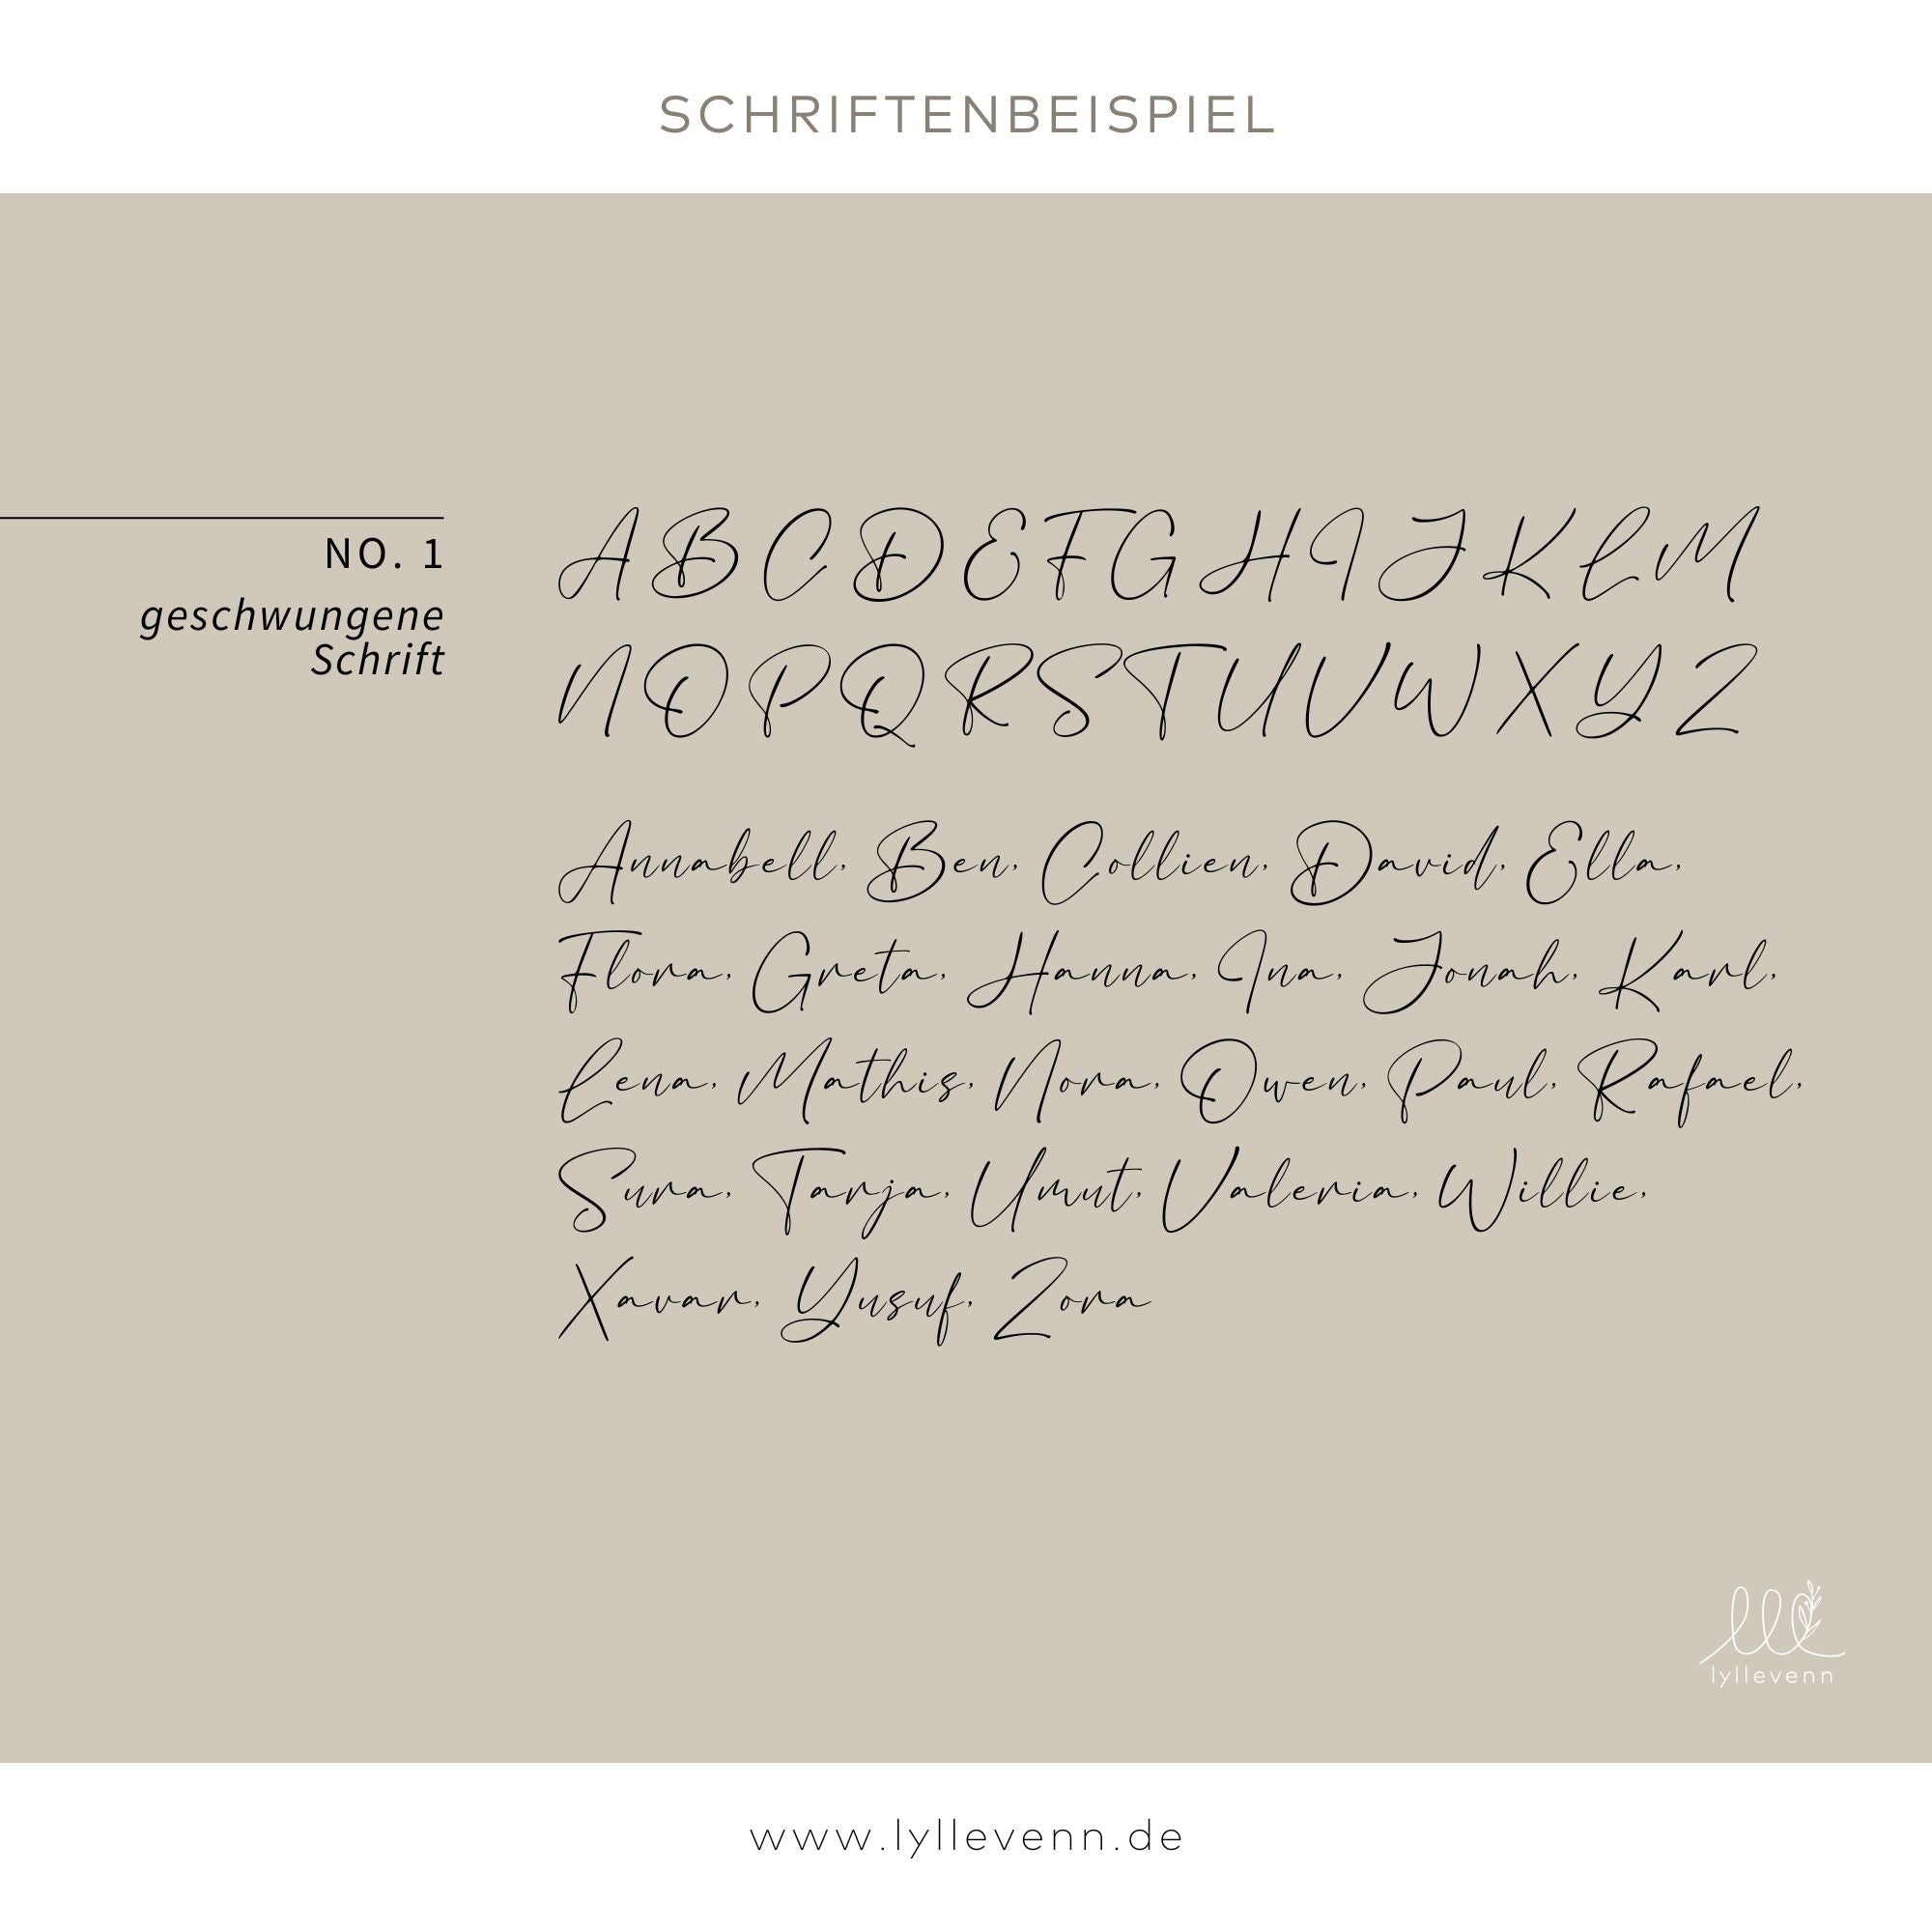 SCHRIFTENBEISPIEL
NO. 1
geschwungene
Schrift
A B C D E F G H I J K L M
N O P Q R S T U V W X Y Z
Annabell, Ben, Collien, David, Ella,
Flora, Greta, Hanna, Ina, Jonah, Karl,
Lena, Mathis, Nora, Owen, Paul, Rafael,
Sura, Tarja, Umut, Valeria, Willie,
Xavar, Yusuf, Zora
lyllevenn
www.lyllevenn.de